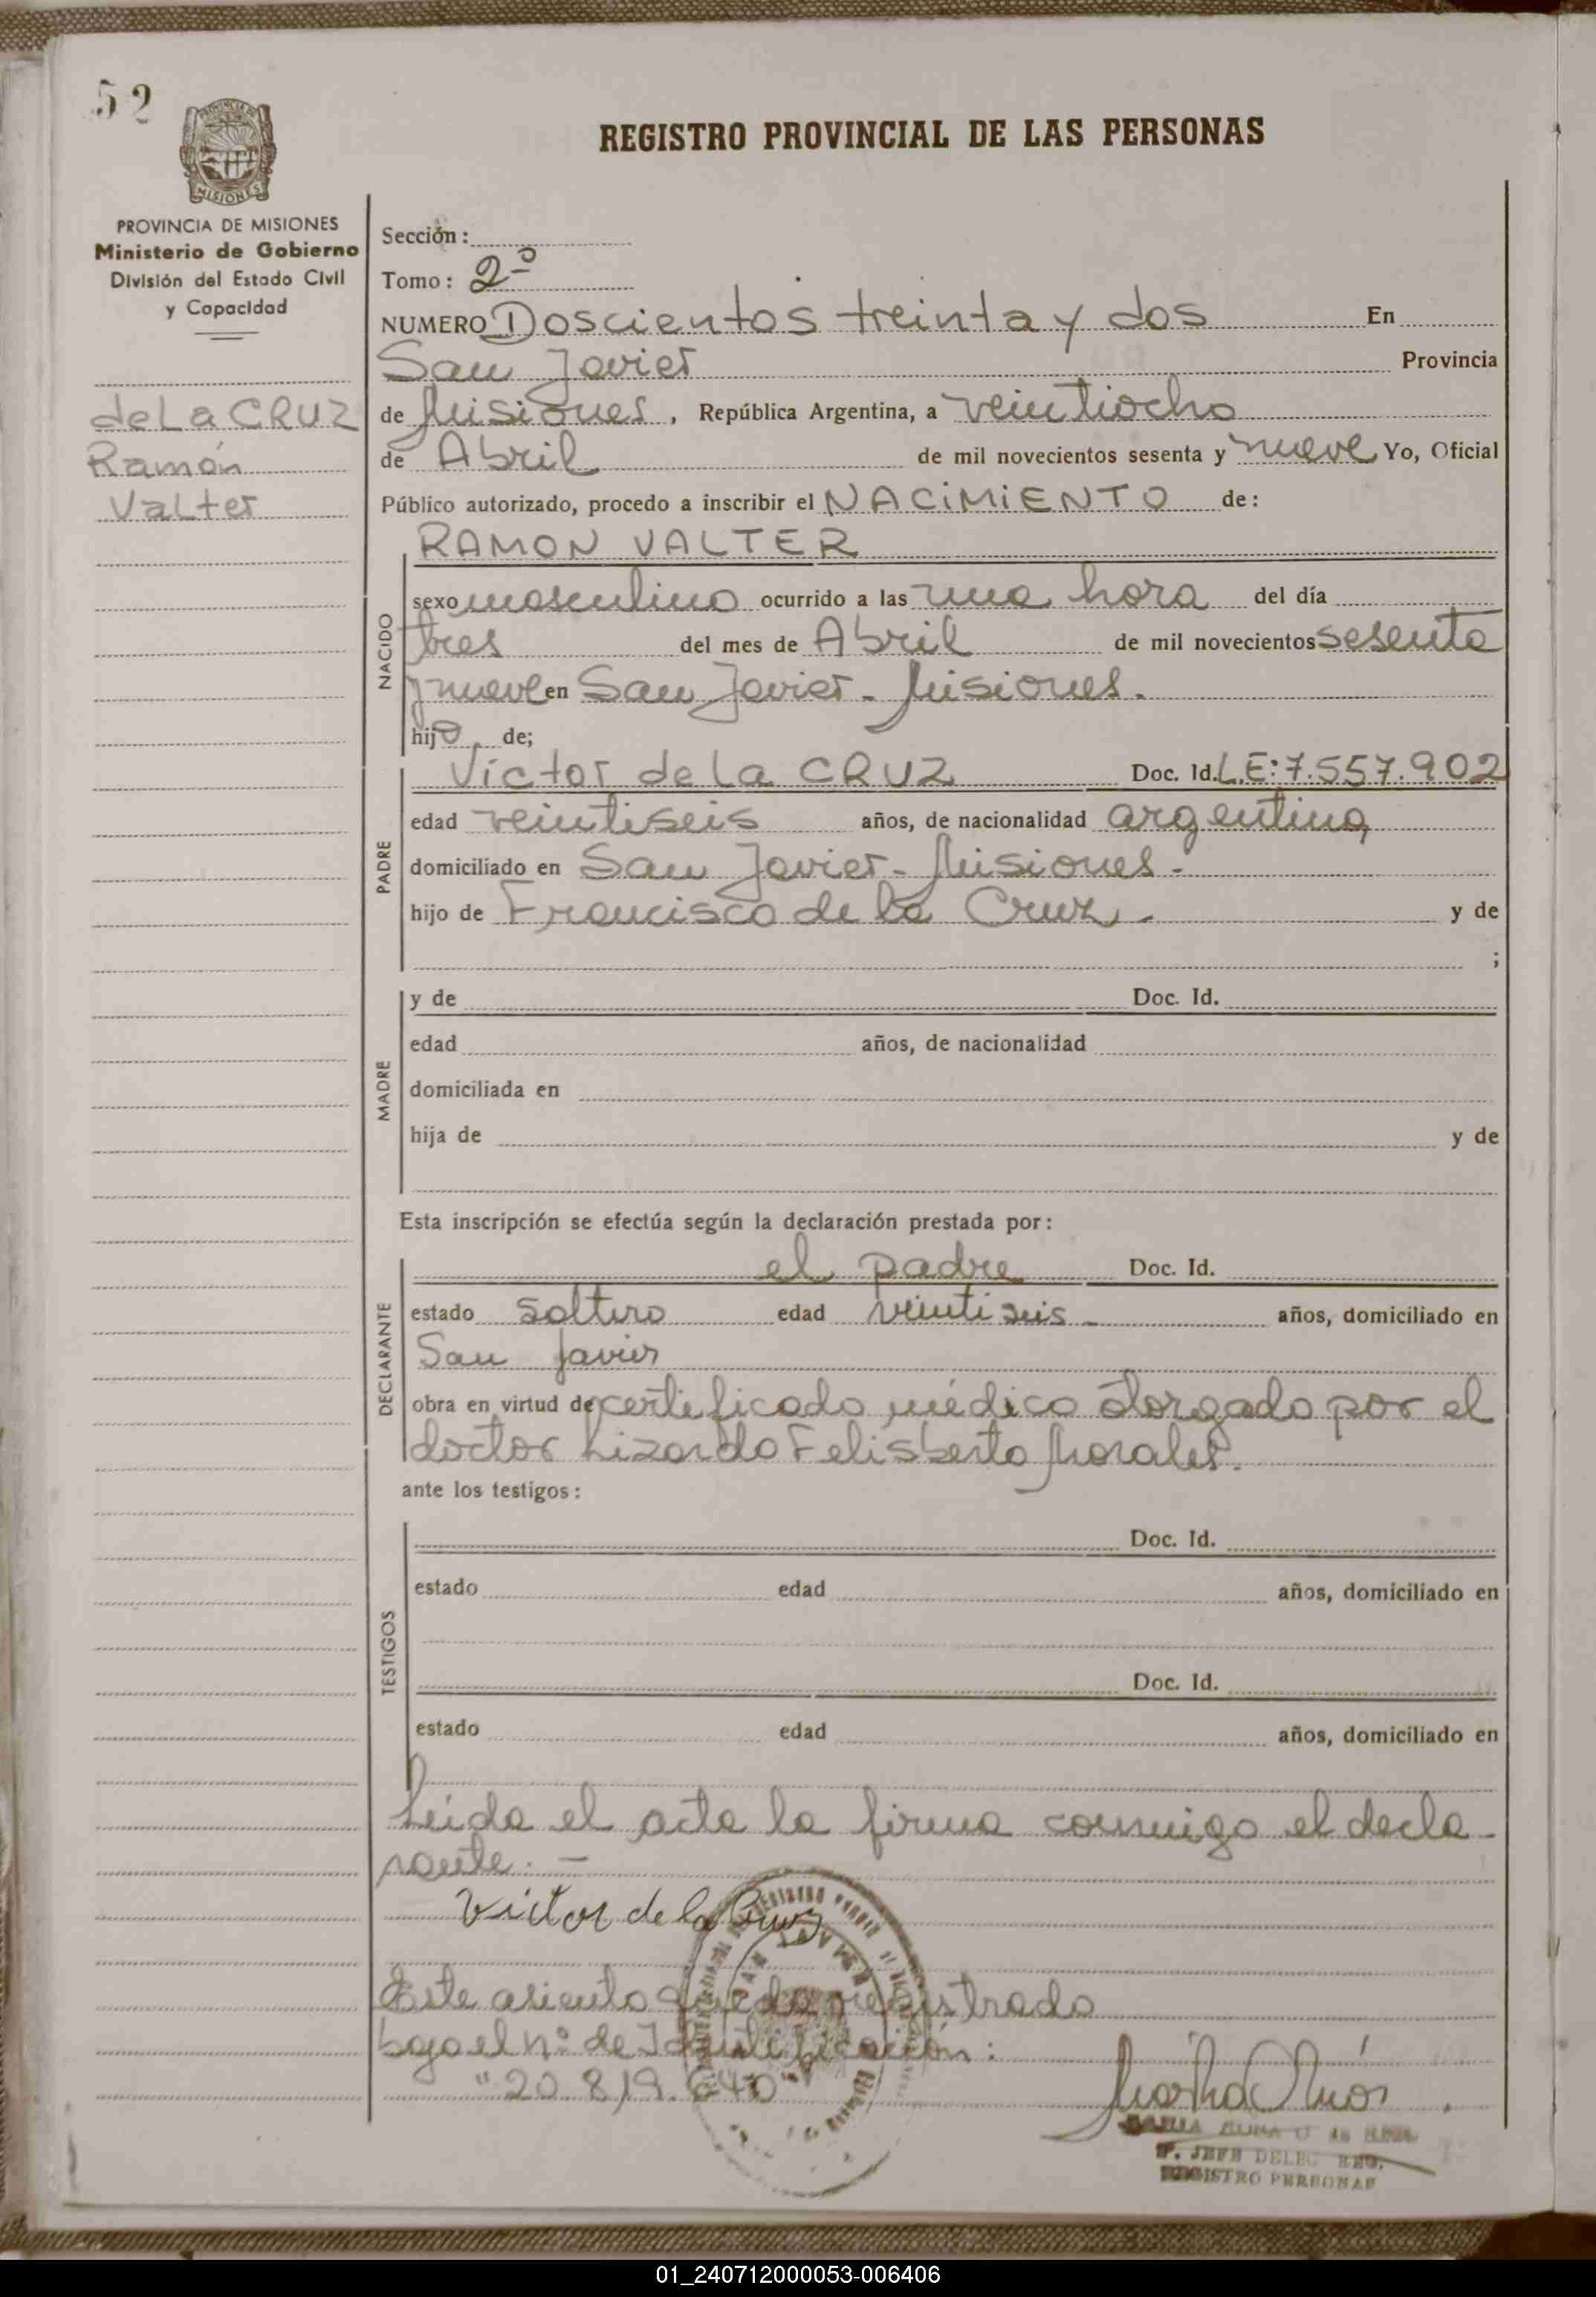 52
PROVINCIA DE MISIONES
Ministerio de Gobierno
División del Estado Civil
y Capacidad
de La CRUZ
Ramón
Valter
REGISTRO PROVINCIAL DE LAS PERSONAS
Sección:
Tomo: 2º
NUMERO Doscientos treinta y dos En
San Javier Provincia
de Misiones, República Argentina, a veintiocho
de Abril de mil novecientos sesenta y nueve Yo, Oficial
Público autorizado, procedo a inscribir el NACIMIENTO de:
NACIDO
RAMON VALTER
sexo masculino ocurrido a las una hora del día
tres del mes de Abril de mil novecientos sesenta
y nueve en San Javier - Misiones.
hijo de;
PADRE
Víctor de la CRUZ Doc. Id. L.E: 7.557.902
edad veintiseis años, de nacionalidad argentina
domiciliado en San Javier - Misiones -
hijo de Francisco de la Cruz. - y de
;
MADRE
y de Doc. Id.
edad años, de nacionalidad
domiciliada en
hija de y de
Esta inscripción se efectúa según la declaración prestada por:
DECLARANTE
el padre Doc. Id.
estado soltero edad veintiseis - años, domiciliado en
San Javier
obra en virtud de certificado médico otorgado por el
doctor Lizardo Felisberto Morales.
ante los testigos:
TESTIGOS
Doc. Id.
estado edad años, domiciliado en
Doc. Id.
estado edad años, domiciliado en
Leída el acta la firma conmigo el decla-
rante. -
Victor de la Cruz
Este asiento queda registrado
bajo el nº de Identificación:
"20.819.640"
JEFE DELEG. REG.
REGISTRO PERSONAS
01_240712000053-006406